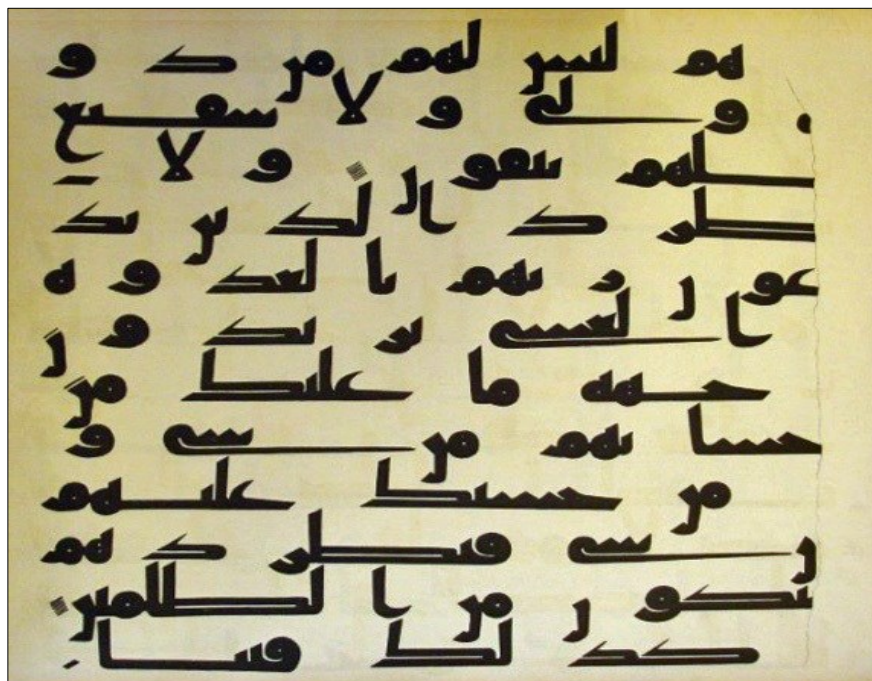 هم ليس لهم من د و
ه و لى و لا شفيع
لعلهم يتقو ن و لا ت
طر د ا لذ ين يد
عو ن ر بهم با لغد و ه
ا لعشى ير يد و ن
جهه ما عليك من
حسا بهم من شى و
من حسبك عليهم
ن شى فتطر د هم
فتكو ن من ا لظلمين
كذ لك فتنا